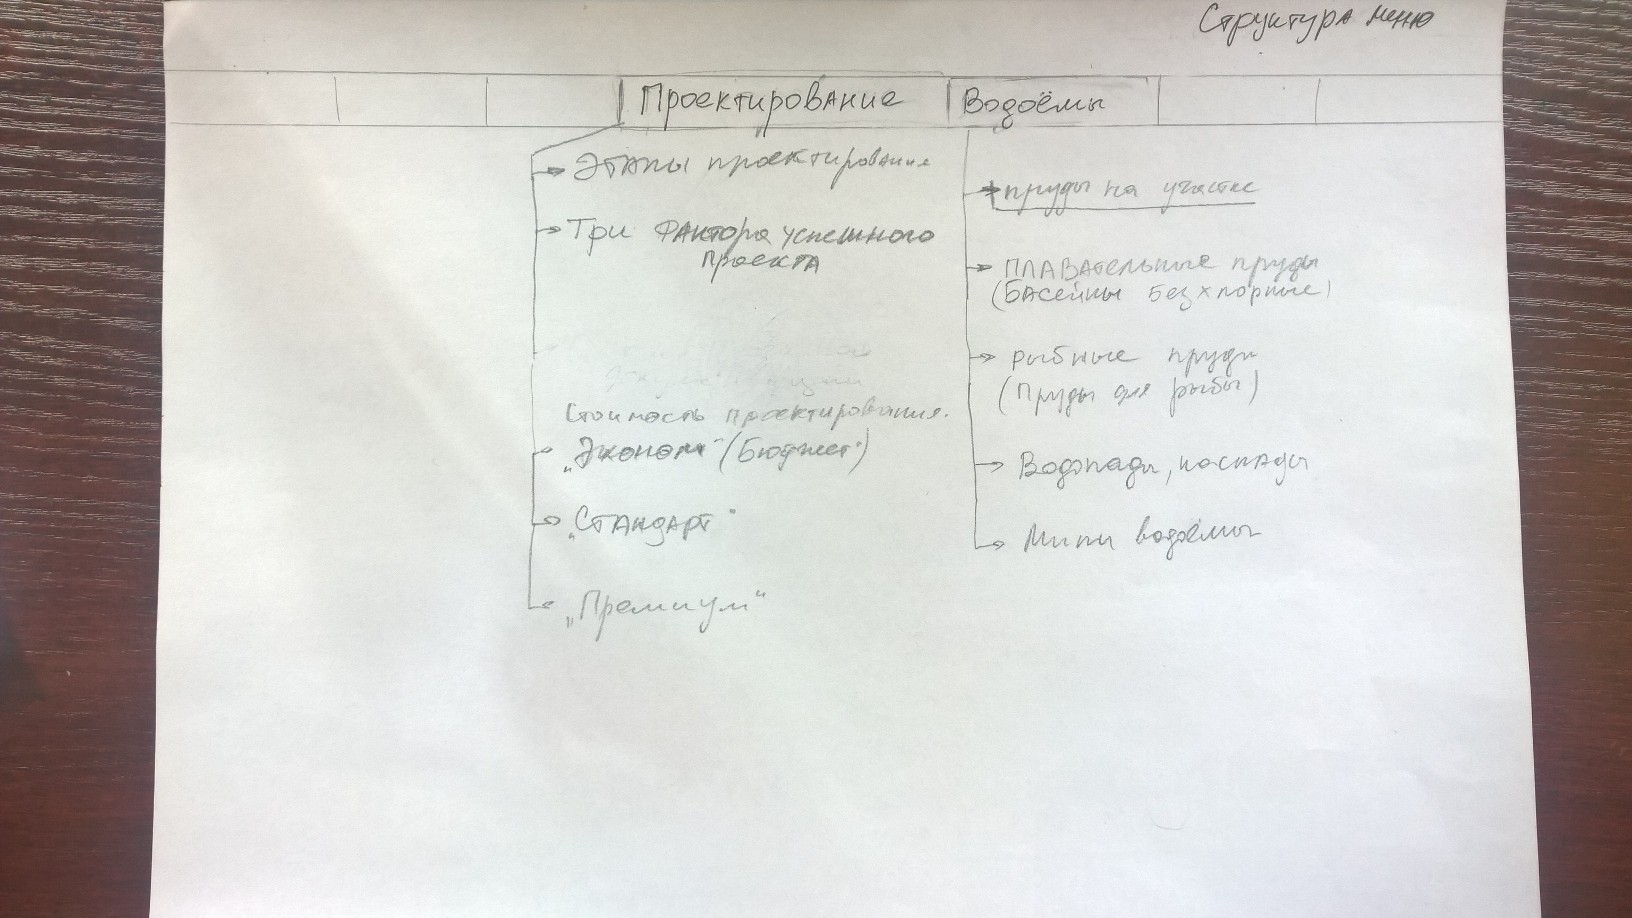 Структура меню
Проектирование
Водоёмы
Этапы проектирования
Три фактора успешного
проекта
Стоимость проектирования.
„Эконом" (Бюджет")
„Стандарт"
„Премиум"
пруды на участке
Плавательные пруды
(Басейны безхлорные)
рыбные пруды
(Пруды для рыбы)
Водопады, каскады
Мини водоёмы